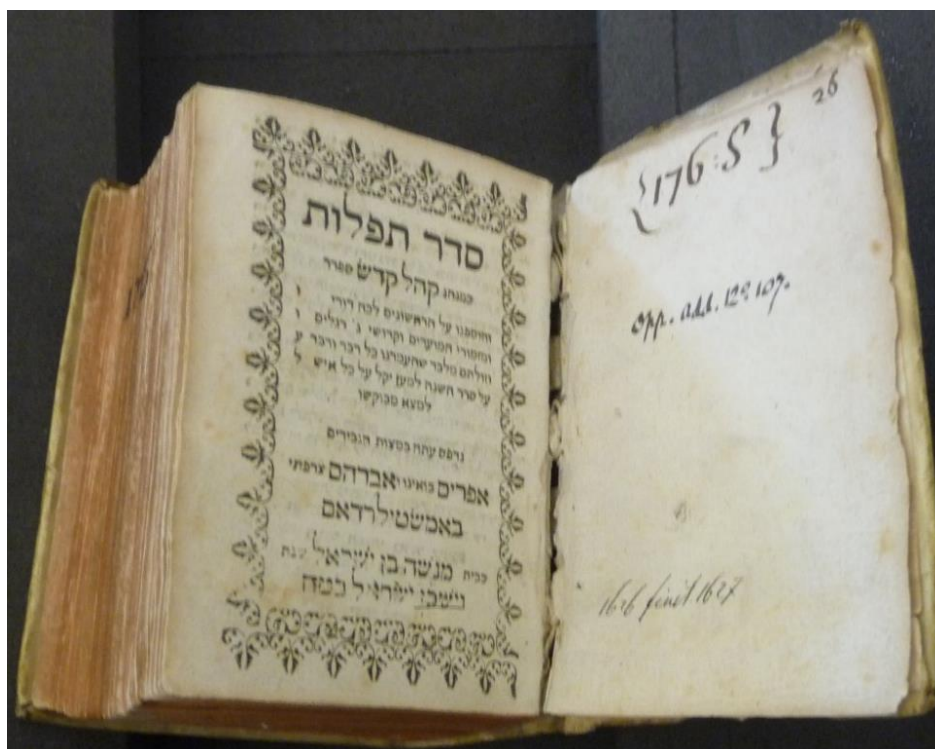 סדר תפלות
כמנהג קהל קדש ספרד
והוספנו על הראשונים לכה דודי ו
ומזמורי המועדים וקדושי ג' רגלים ו
וזולתם מלבד שהעמדנו כל דבר ודבר ע
על סדר השנה למען יקל על כל איש ל
למצא מבוקשו
נדפס עתה במצות הגבירים
אפרים בואינו ואברהם צרפתי
באמשטילרדאם
בבית מנשה בן ישראל שנת
וישכן ישראל בטח
26
{176:S}
Opp. add. 12º 107.
1626 finit 1627